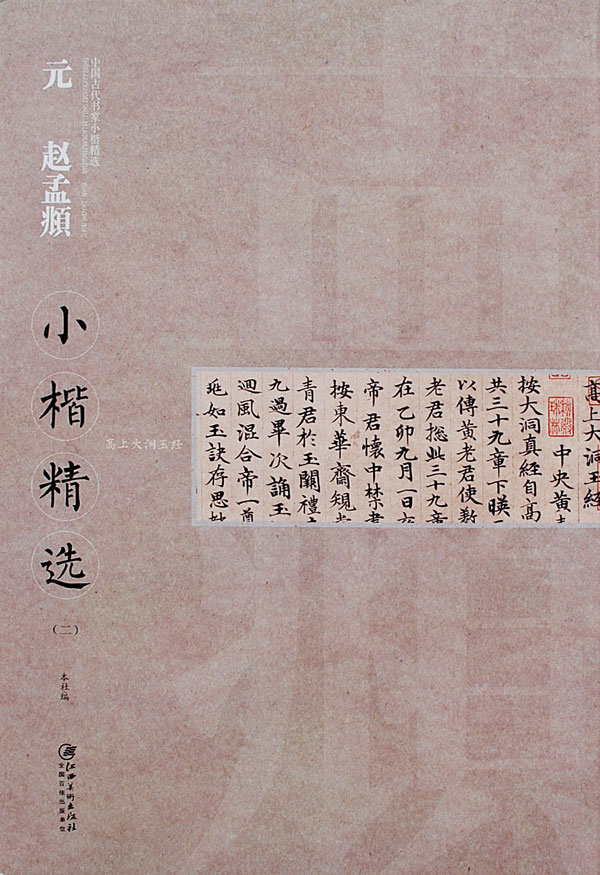 中国古代书家小楷精选
元 赵孟頫
小楷精选
高上大洞玉经
（二）
本社编
江西美术出版社
全国百佳出版单位
高上大洞玉經
中央黃
按大洞真經自高
共三十九章下暎
以傳黃老君使教
老君揔此三十九章
在乙卯九月一日
帝君懷中禁書
按東華齋規
青君於玉闕禮
九過畢次誦玉
迴風混合帝一尊
如玉訣存思